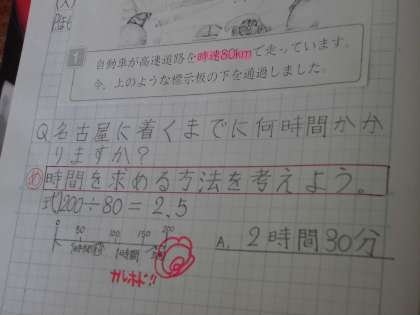 1 自動車が高速道路を時速80kmで走っています。
今、上のような標示板の下を通過しました。
Q 名古屋に着くまでに何時間かか
りますか？
め 時間を求める方法を考えよう。
式)200÷80=2.5
0 50 100 150 200
1時間
A. 2時間30分